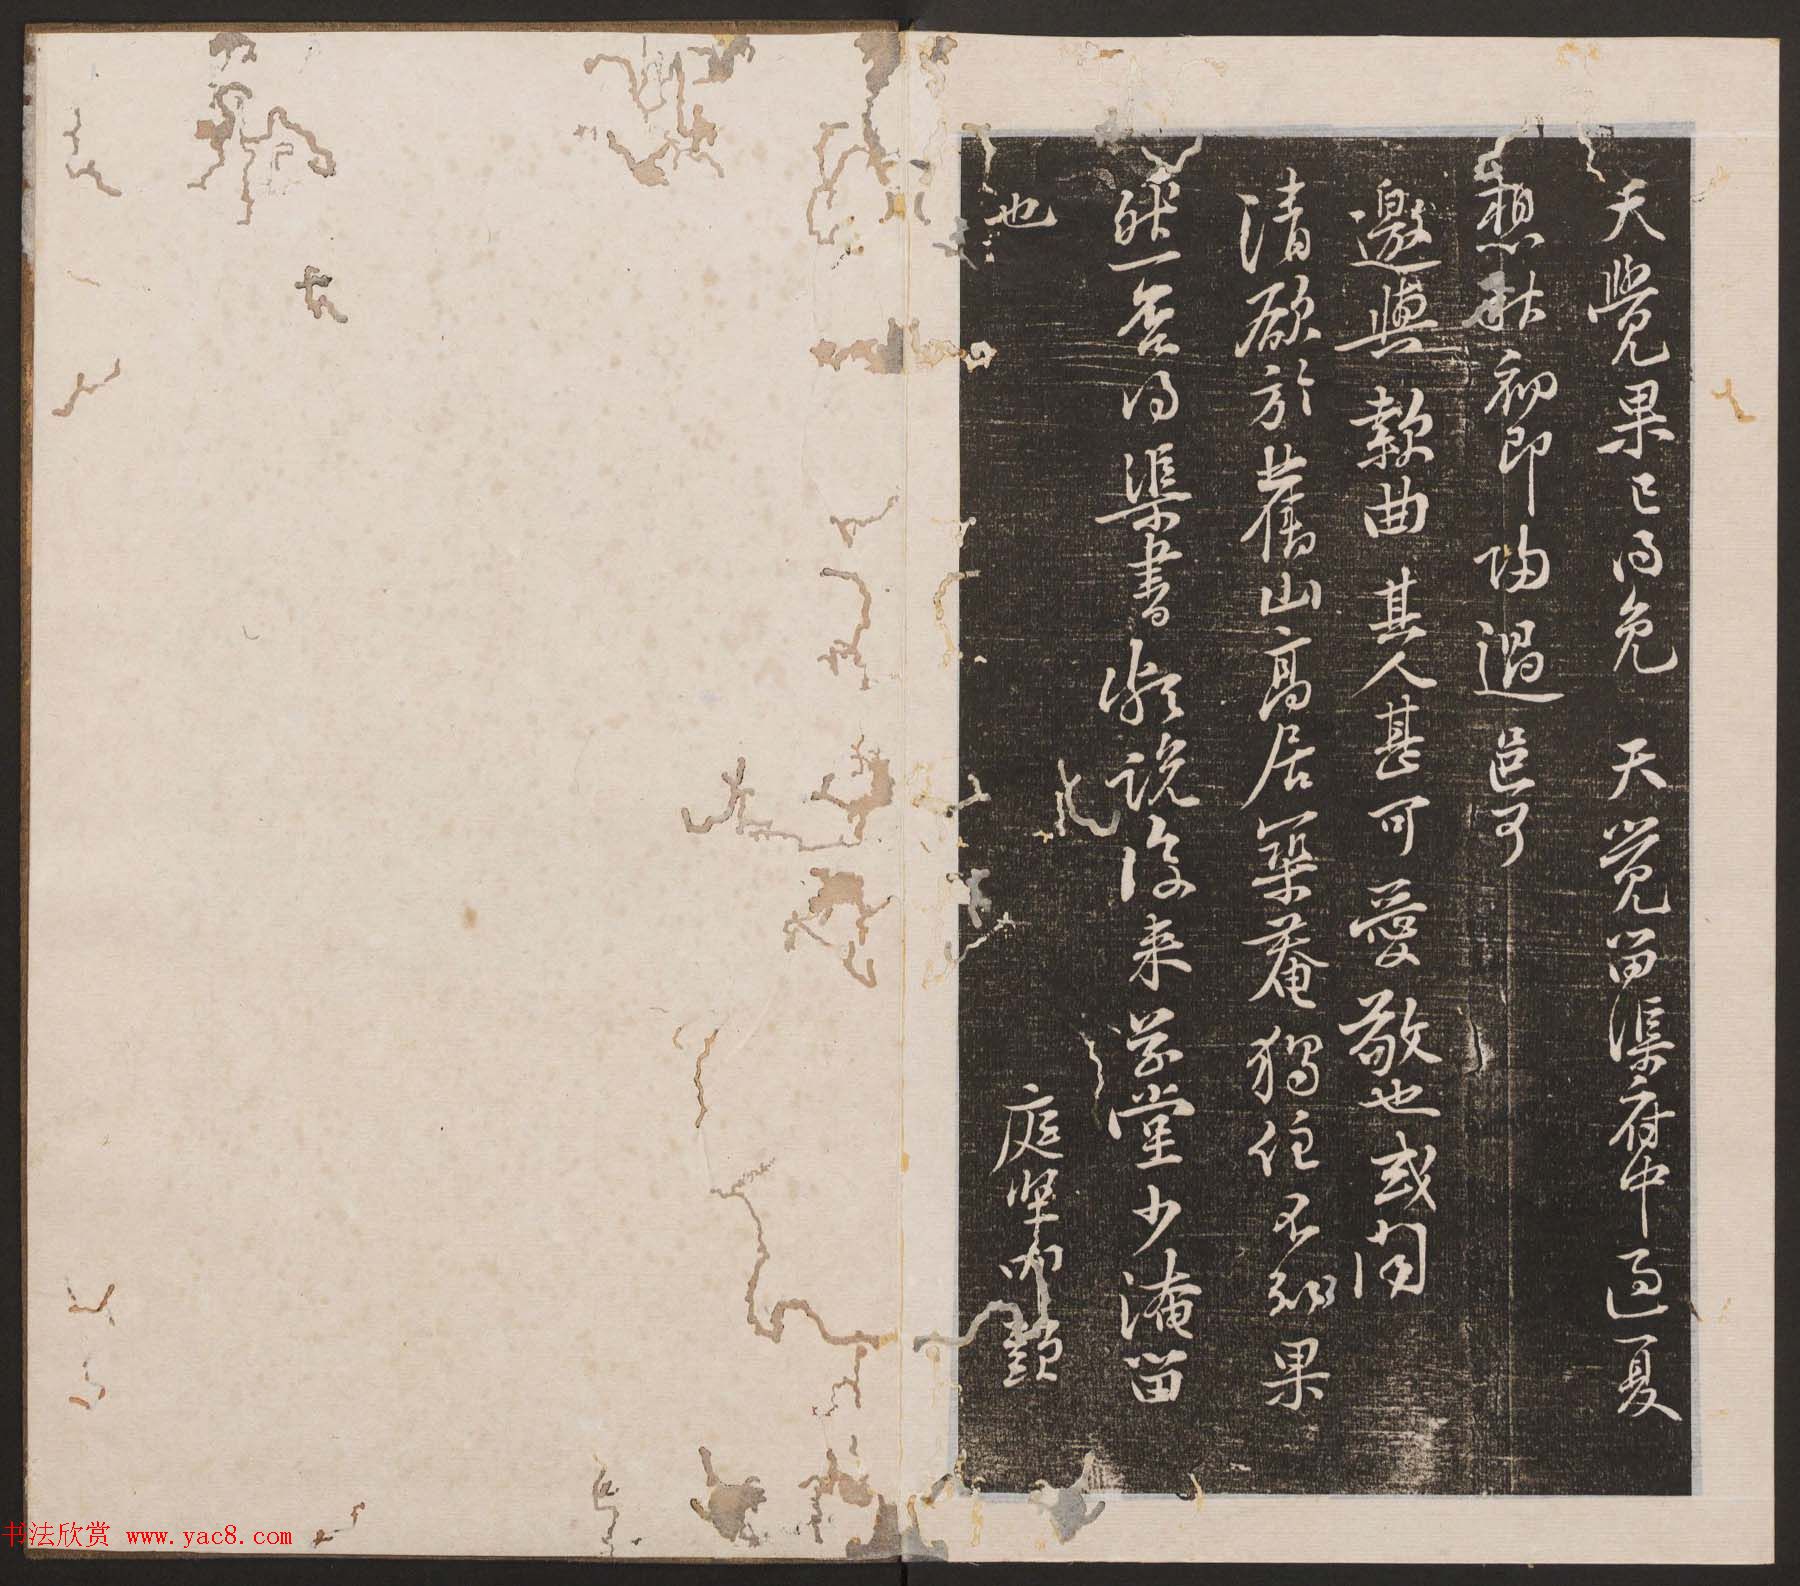 天覺果已得免 天覺留渠府中過夏
想秋初即歸過邑可
邀與款曲其人甚可愛敬也或聞
清欲於舊山高居築菴獨住不知果
然否得渠書說後来堂少淹留
也
庭堅叩頭
书法欣赏 www.yac8.com